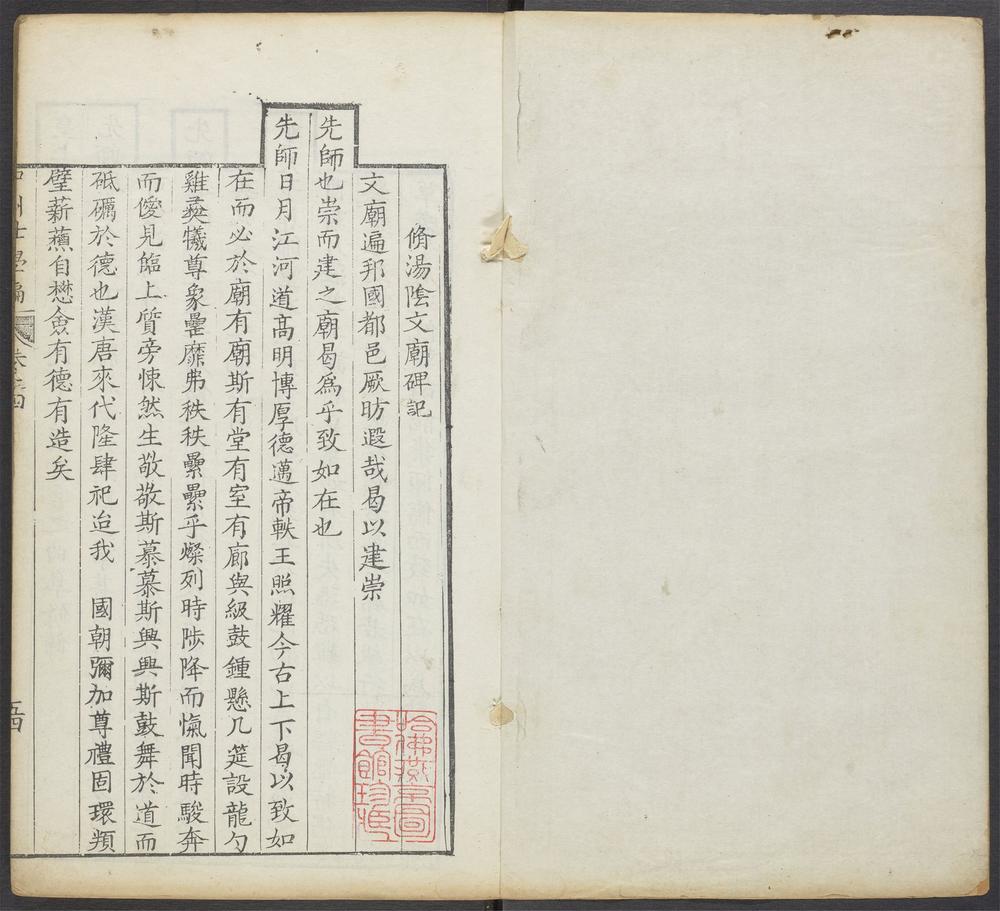 脩湯隂文廟碑記
文廟遍邦國都邑厥昉遐哉曷以建崇
先師也崇而建之廟曷為乎致如在也
先師日月江河道髙明博厚德邁帝軼王照耀今古上下曷以致如
在而必於廟有廟斯有堂有室有廊與級鼓鍾懸几筵設龍勺
雞彛犧尊象罍靡弗秩秩纍纍乎燦列時陟降而愾聞時駿奔
而僾見臨上質旁悚然生敬敬斯慕慕斯興興斯鼓舞於道而
砥礪於德也漢唐來代隆肆祀迨我 國朝彌加尊禮固環頖
璧薪蘓自懋僉有德有造矣
卷之四
五四
哈佛燕京圖
書館珍藏